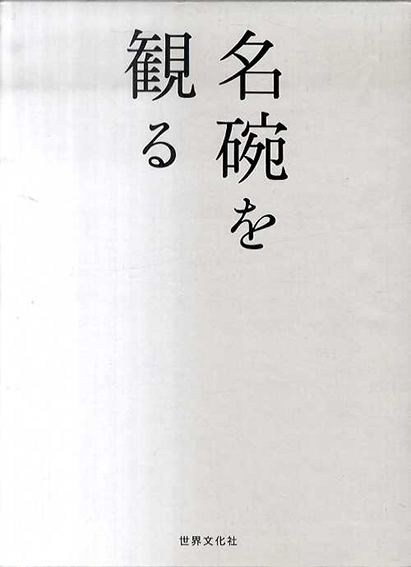 名碗を
観る
世界文化社